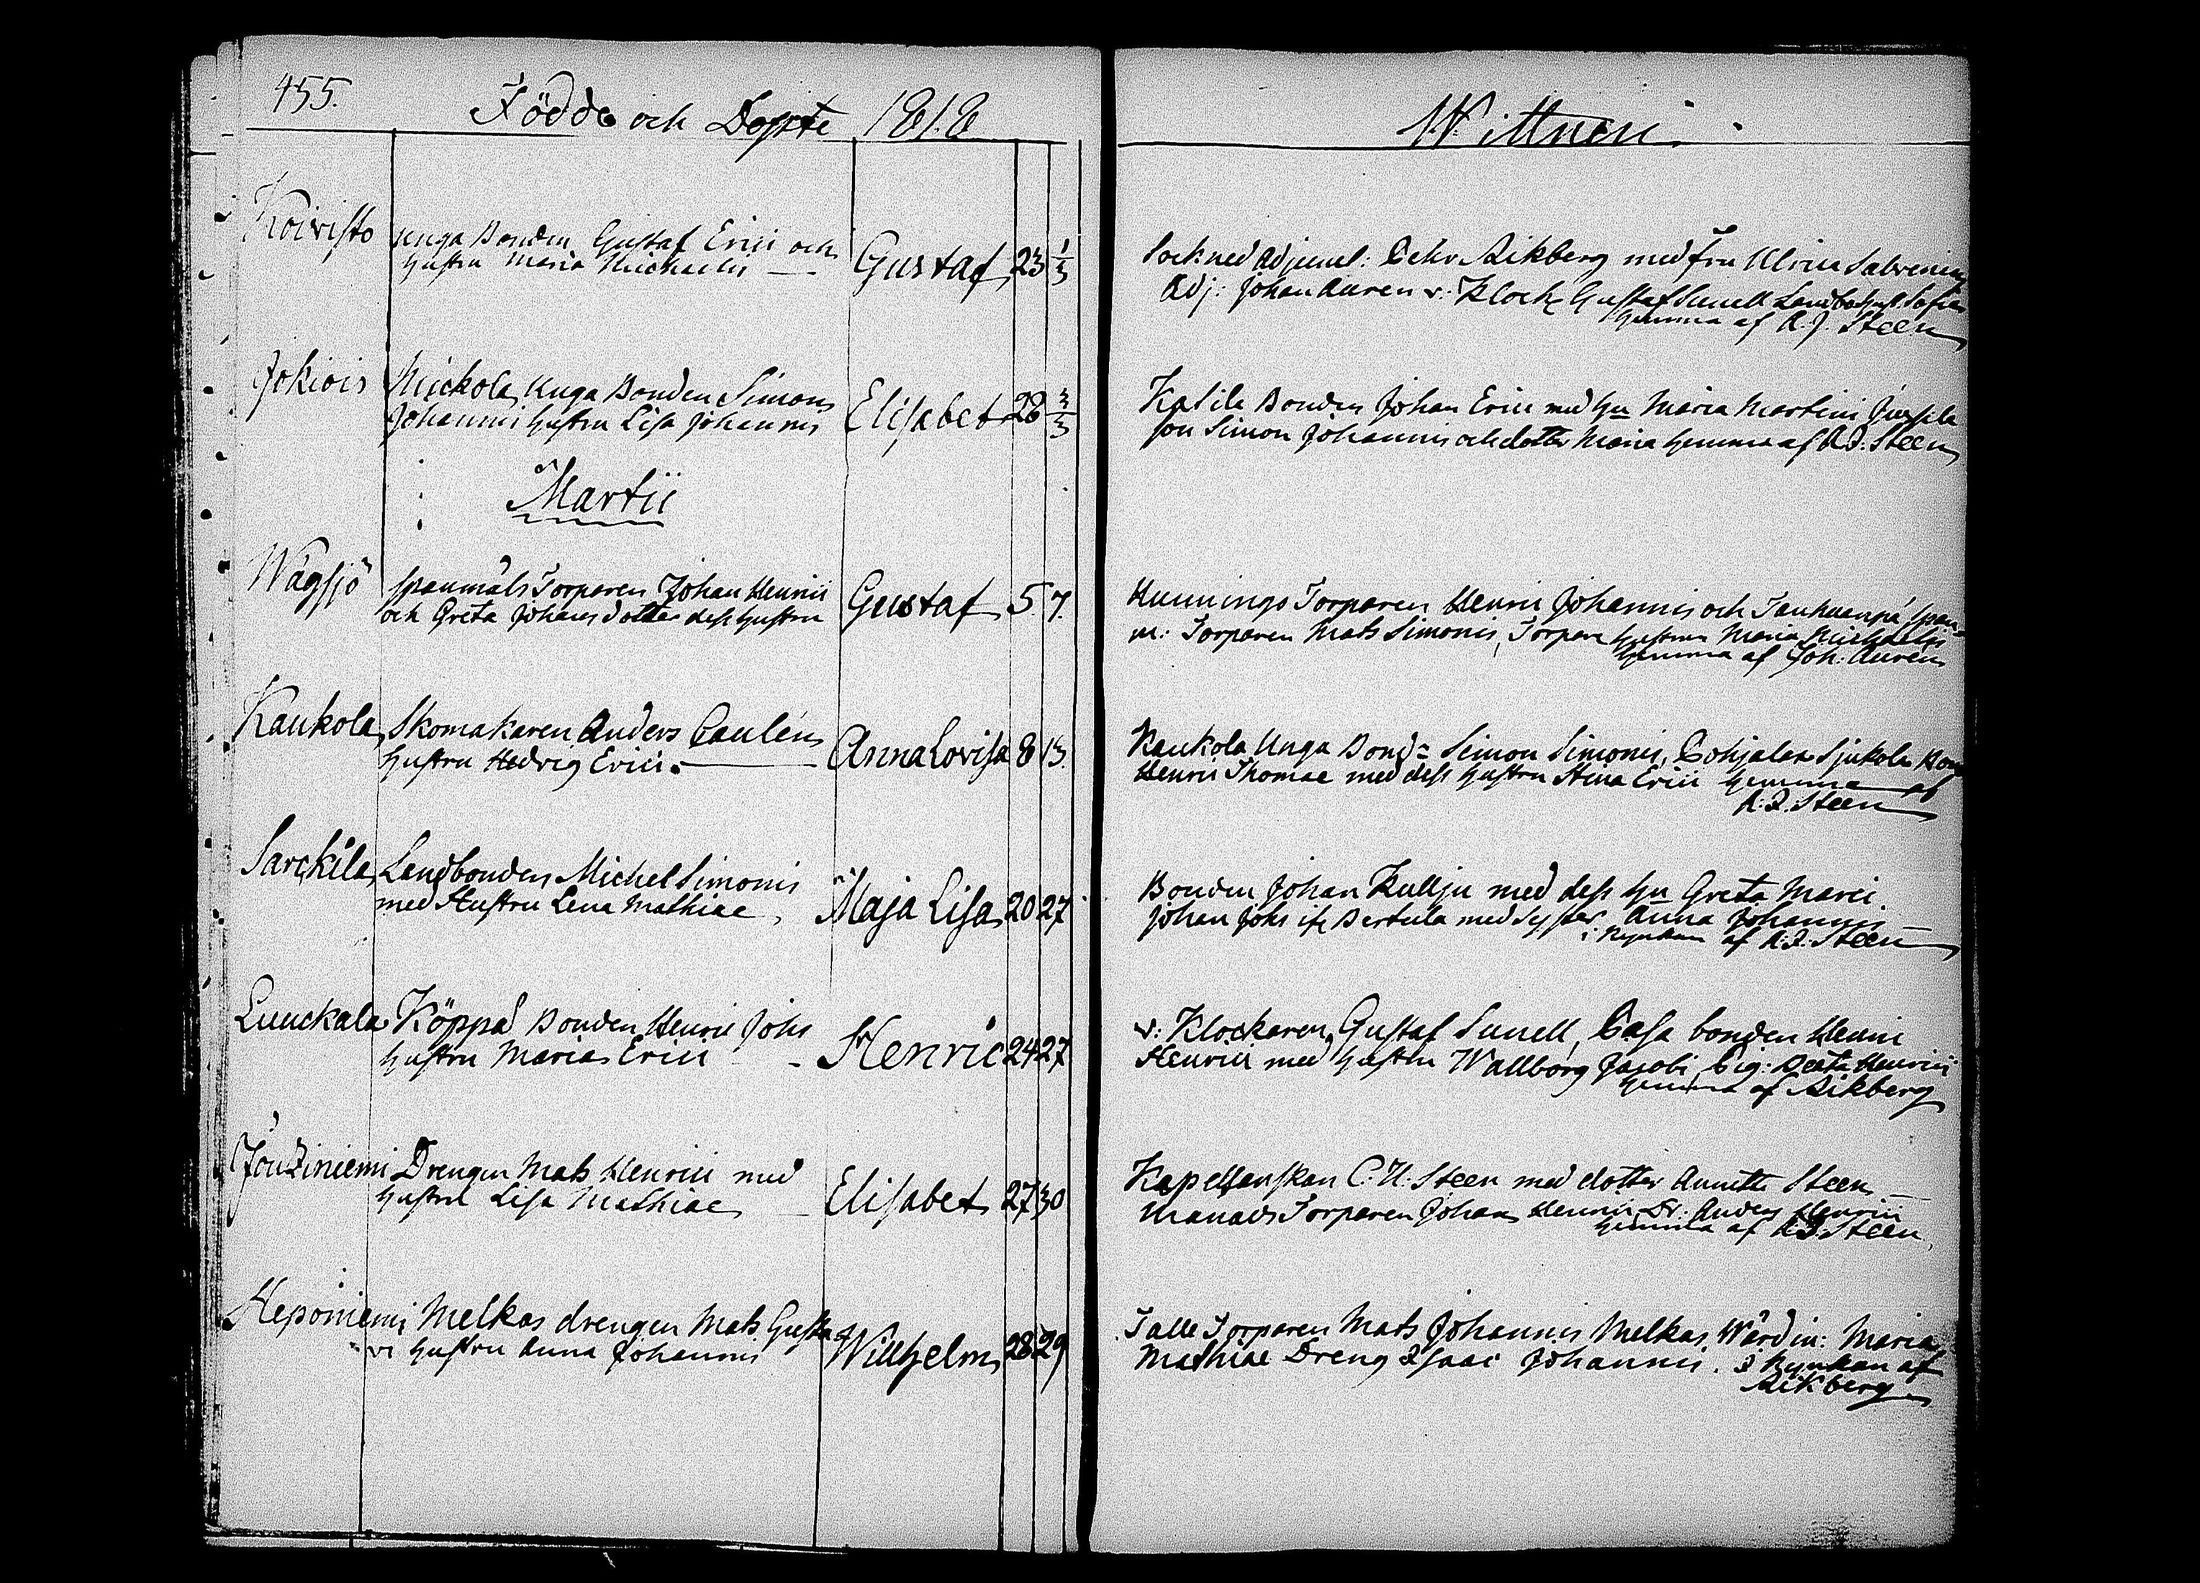 455.
Födde och Döpte 1818
Koivisto
unga Bonden Gustaf Erici och
hustru Maria Michaelis
Gustaf 23 1/3
Jokiois
Mickola unga Bonden Simon
Johannis hustru Lisa Johannis
Elisabet 28 3/3
Martii
Wågsjö
Spanmåls Torparen Johan Henrici
och Greta Johans dotter dess hustru
Gustaf 5 7.
Kaukola
Skomakaren Anders Paulén
hustru Hedvig Erici.
Anna Lovisa 8 13.
Sarckila
Landbonden Michel Simonis
med Hustru Lena Mathiae
Maja Lisa 20 27
Luuckala
Köppä Bonden Henric Johs
hustru Maria Erici
Henric 24 27
Jouziniemi
Drengen Mats Henrici med
hustru Lisa Mathiae
Elisabet 27 30
Heponiemi
Melkas drengen Mats Gusta
vi hustru Anna Johannis
Wilhelm 28 29
Wittnen
Sockne Adjunct: Pehr Aikberg med fru Ulrica
Adj: Johan Auren v: Klock Gustaf Sunell
hemma af A. J. Steen
Katila Bonden Johan Erici med hu Maria Martini
son Simon Johannis och dotter Maria hemma af A. J. Steen
Hunnings Torparen Henric Johannis och
m: Torparen Mats Simonis, Torpare hustrun Maria Michaelis
hemma af Joh: Auren
Kaukola Unga Bond= Simon Simonis,
Henric Thomae med dess hustru Stina Erici hemma af
A: J: Steen
Bonden Johan Kullju med dess hu Greta Marci.
Johan Johs ifr Bertula med syster Anna Johannis
i Kyrckan af A: J: Steen
v: Klockaren Gustaf Sunell, Pasa bonden Henric
Henrici med hustru Wallborg Jacobi Pig: Beata Henrici
hemma af Aikberg
Kapellanskan C: H: Steen med dotter Annette Steen
Torparen Johan Henrici Dr: Anders Henrici
hemma af A J: Steen
Talle Torparen Mats Johannis Melkas Wärdin: Maria
Mathiae Dreng Isaac Johannis. I Kyrkan af
Aikberg